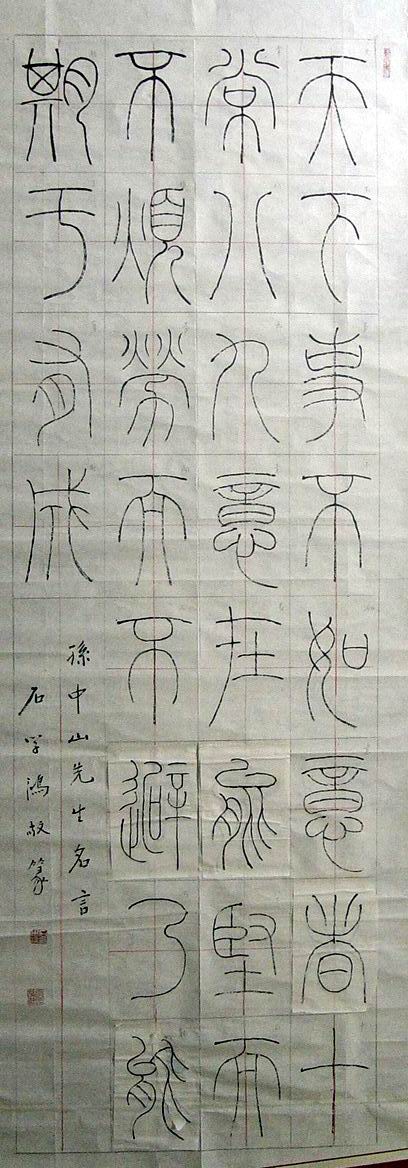 天下事不如意者十
常八九意在堅而
不煩勞而不避乃能
期于有成
孫中山先生名言
石学鴻敬篆